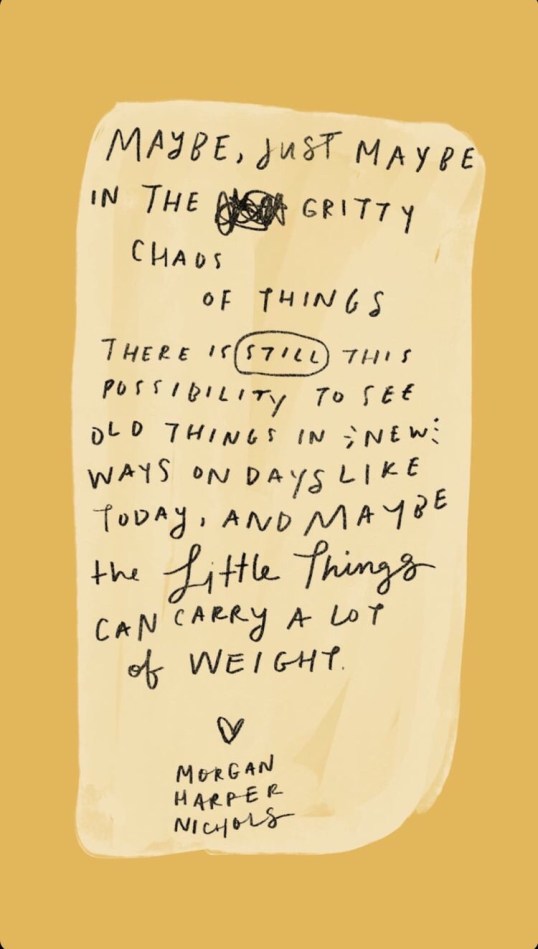 MAYBE, JUST MAYBE
IN THE GRITTY
CHAOS
OF THINGS
THERE IS STILL THIS
POSSIBILITY TO SEE
OLD THINGS IN NEW
WAYS ON DAYS LIKE
TODAY, AND MAYBE
the Little Things
CAN CARRY A LOT
of WEIGHT.
MORGAN
HARPER
NICHOLS